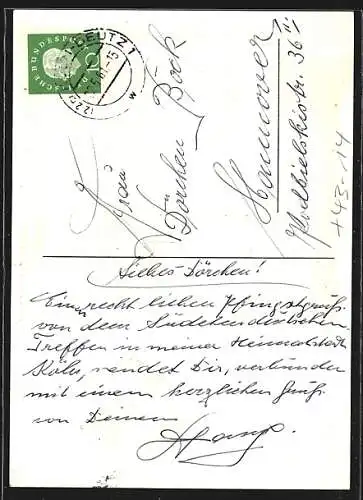 DEUTSCHE BUNDESPOST
DEUTZ 1
w
Frau
Dörchen Bock
Hannover
Podbielskistr. 36 II
+43-14
Liebes Dörchen!
Einen recht lieben Pfingstgruß
von dem Sudetendeutschen
Treffen in meiner Heimatstadt
Köln, sendet Dir, verbunden
mit einem herzlichen Gruß
von Deinem
Hans.